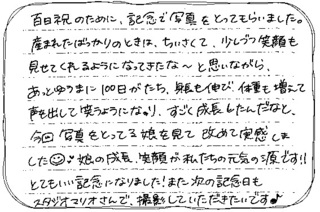 百日祝のために、記念で写真をとってもらいました。
産まれたばっかりのときは、ちいさくて、少しづつ笑顔も
見せてくれるようになってきたな～と思いながら、
あっとゆうまに100日がたち、身長も伸び、体重も増えて
声も出して笑うようになり、すごく成長したんだなと、
今回写真をとってる娘を見て改めて実感しま
した♪娘の成長、笑顔が私たちの元気の源です!!
とてもいい記念になりました!また次の記念日も
スタジオマリオさんで、撮影していただきたいです♪